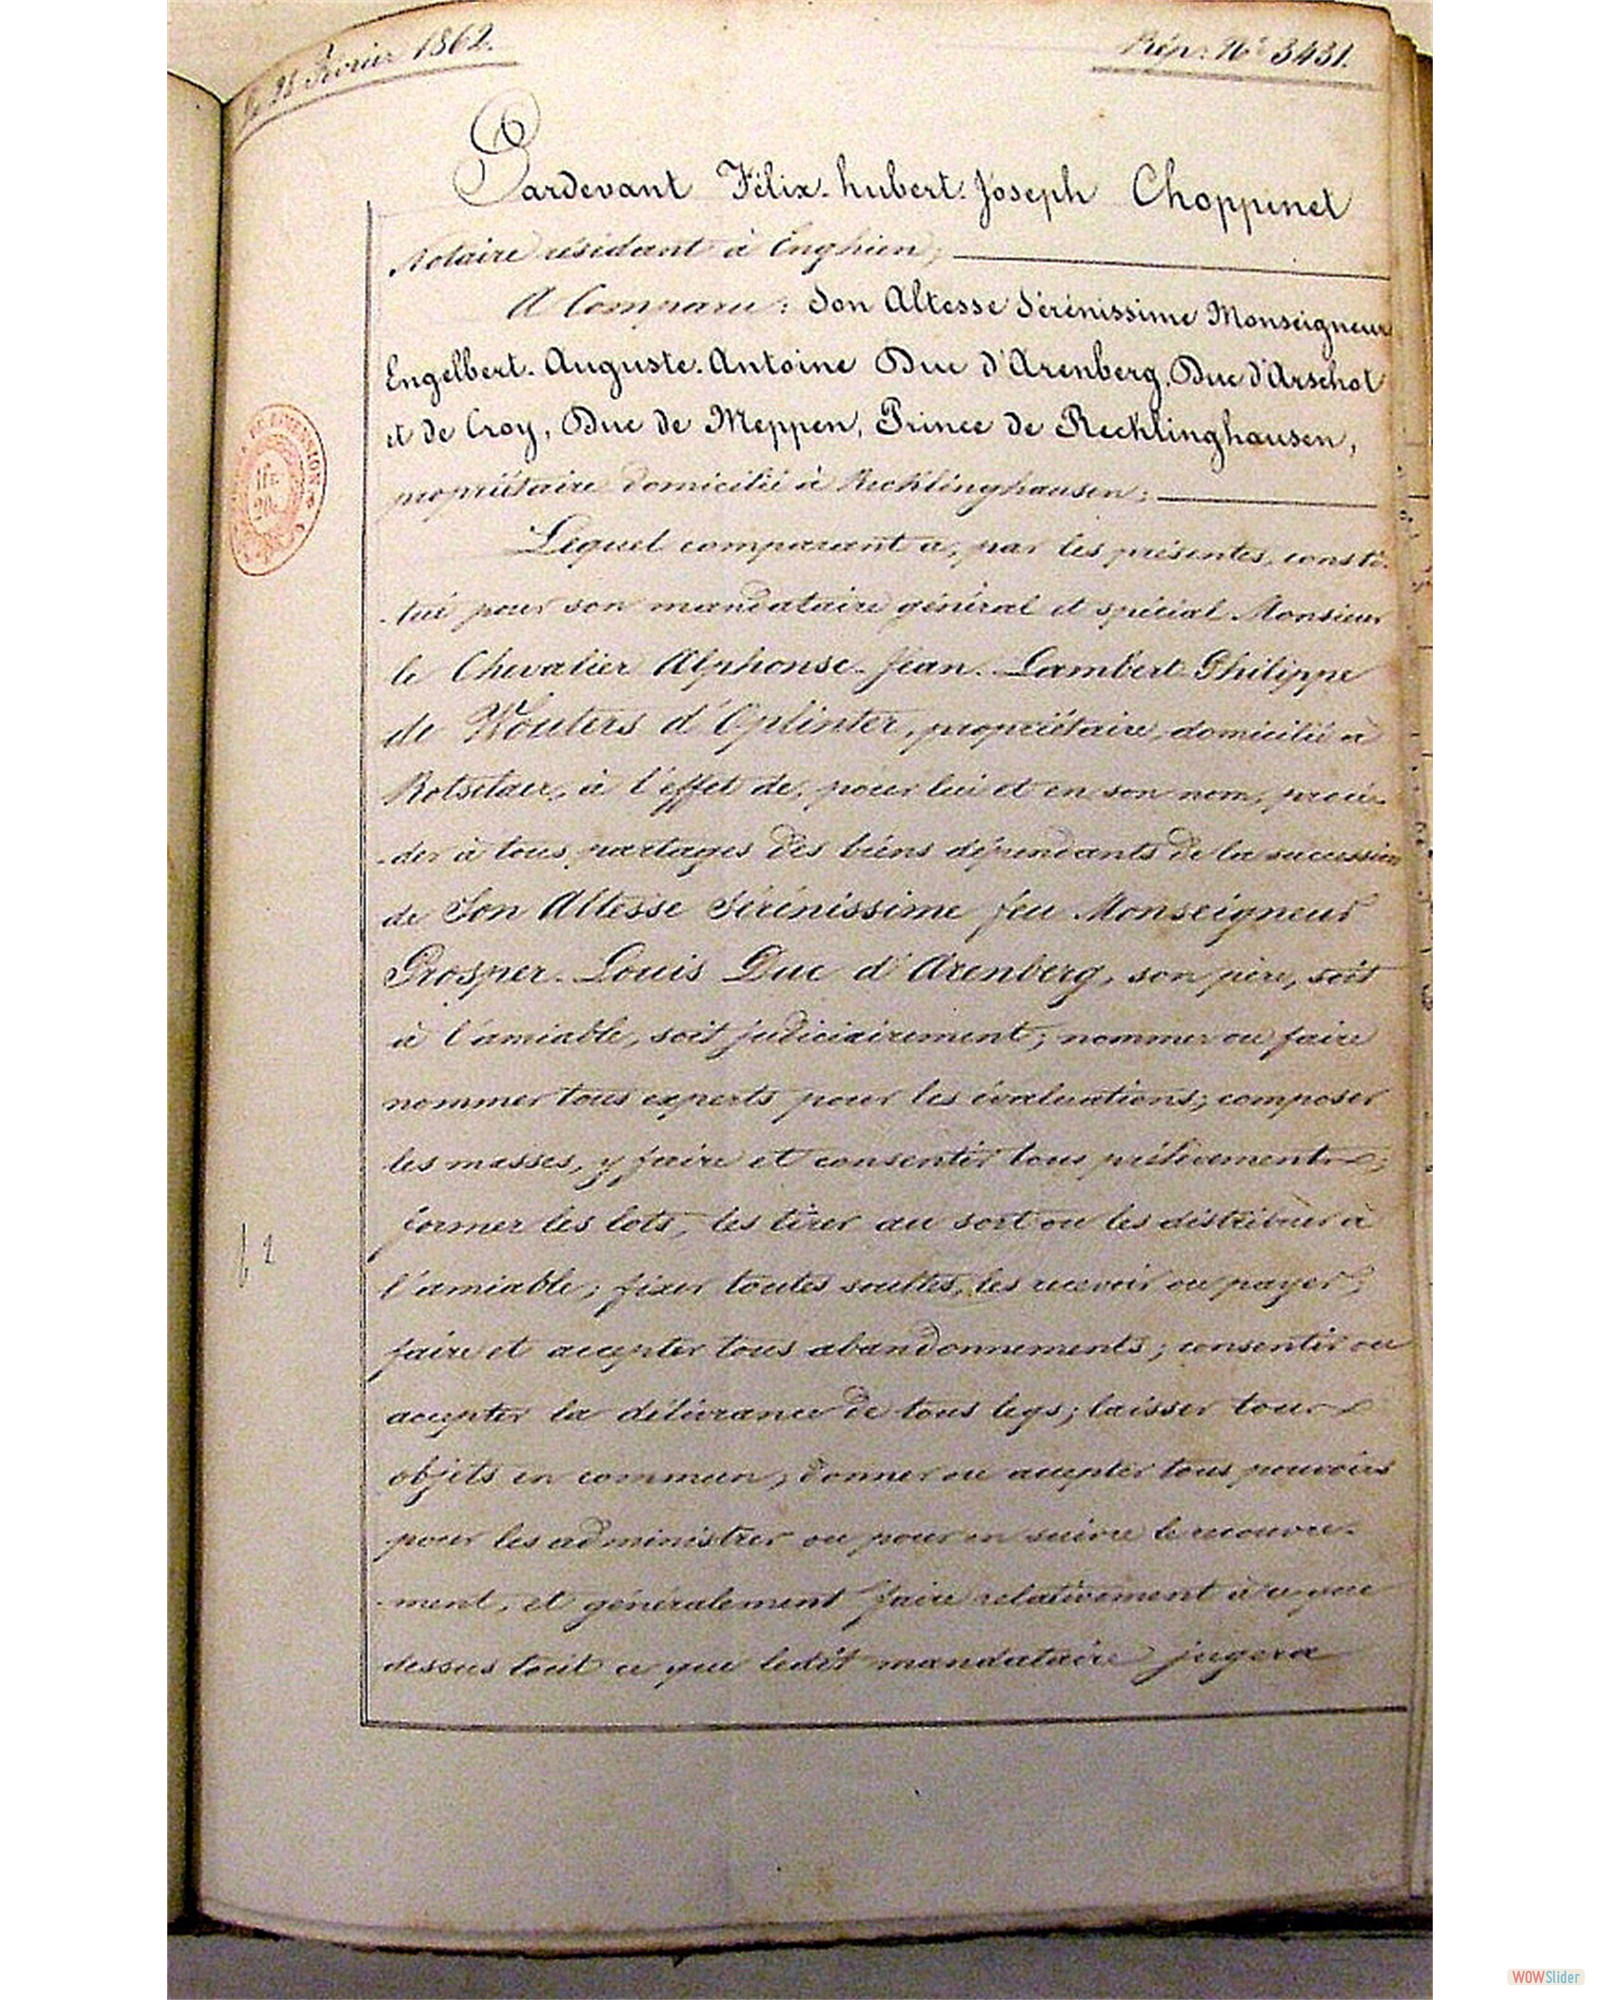 Le 21 Février 1862.
Rép. N° 3431.
Pardevant Félix-hubert-Joseph Choppinet
Notaire résidant à Enghien;
A Comparu: Son Altesse Sérénissime Monseigneur
Engelbert-Auguste-Antoine Duc d'Arenberg, Duc d'Arschot
et de Croy, Duc de Meppen, Prince de Recklinghausen,
propriétaire domicilié à Recklinghausen;
Lequel comparant a, par les présentes, consti-
-tué pour son mandataire général et spécial Monsieur
le Chevalier Alphonse-Jean-Lambert-Philippe
de Wouters d'Oplinter, propriétaire, domicilié à
Rotselaer, à l'effet de, pour lui et en son nom, procé-
-der à tous partages des biens dépendants de la succession
de Son Altesse Sérénissime feu Monseigneur
Prosper-Louis Duc d'Arenberg, son père, soit
à l'amiable, soit judiciairement; nommer ou faire
nommer tous experts pour les évaluations; composer
les masses, y faire et consentir tous prélèvements;
former les lots, les tirer au sort ou les distribuer à
l'amiable; fixer toutes soultes, les recevoir ou payer;
faire et accepter tous abandonnements; consentir ou
accepter la délivrance de tous legs; laisser tous
objets en commun, donner ou accepter tous pouvoirs
pour les administrer ou pour en suivre le recouvre-
-ment, et généralement faire relativement à ce que
dessus tout ce que ledit mandataire jugera
WOWSlider